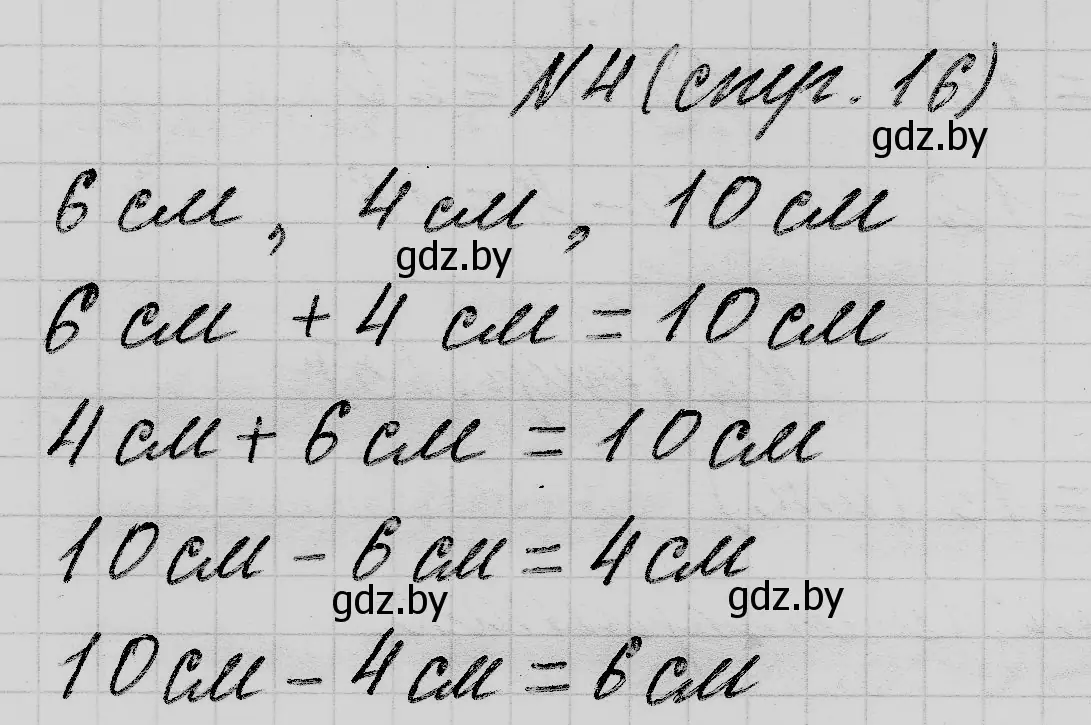 №4 (стр. 16)
gdz.by
6 см, 4 см, 10 см
gdz.by
6 см + 4 см = 10 см
4 см + 6 см = 10 см
10 см - 6 см = 4 см
gdz.by gdz.by
10 см - 4 см = 6 см